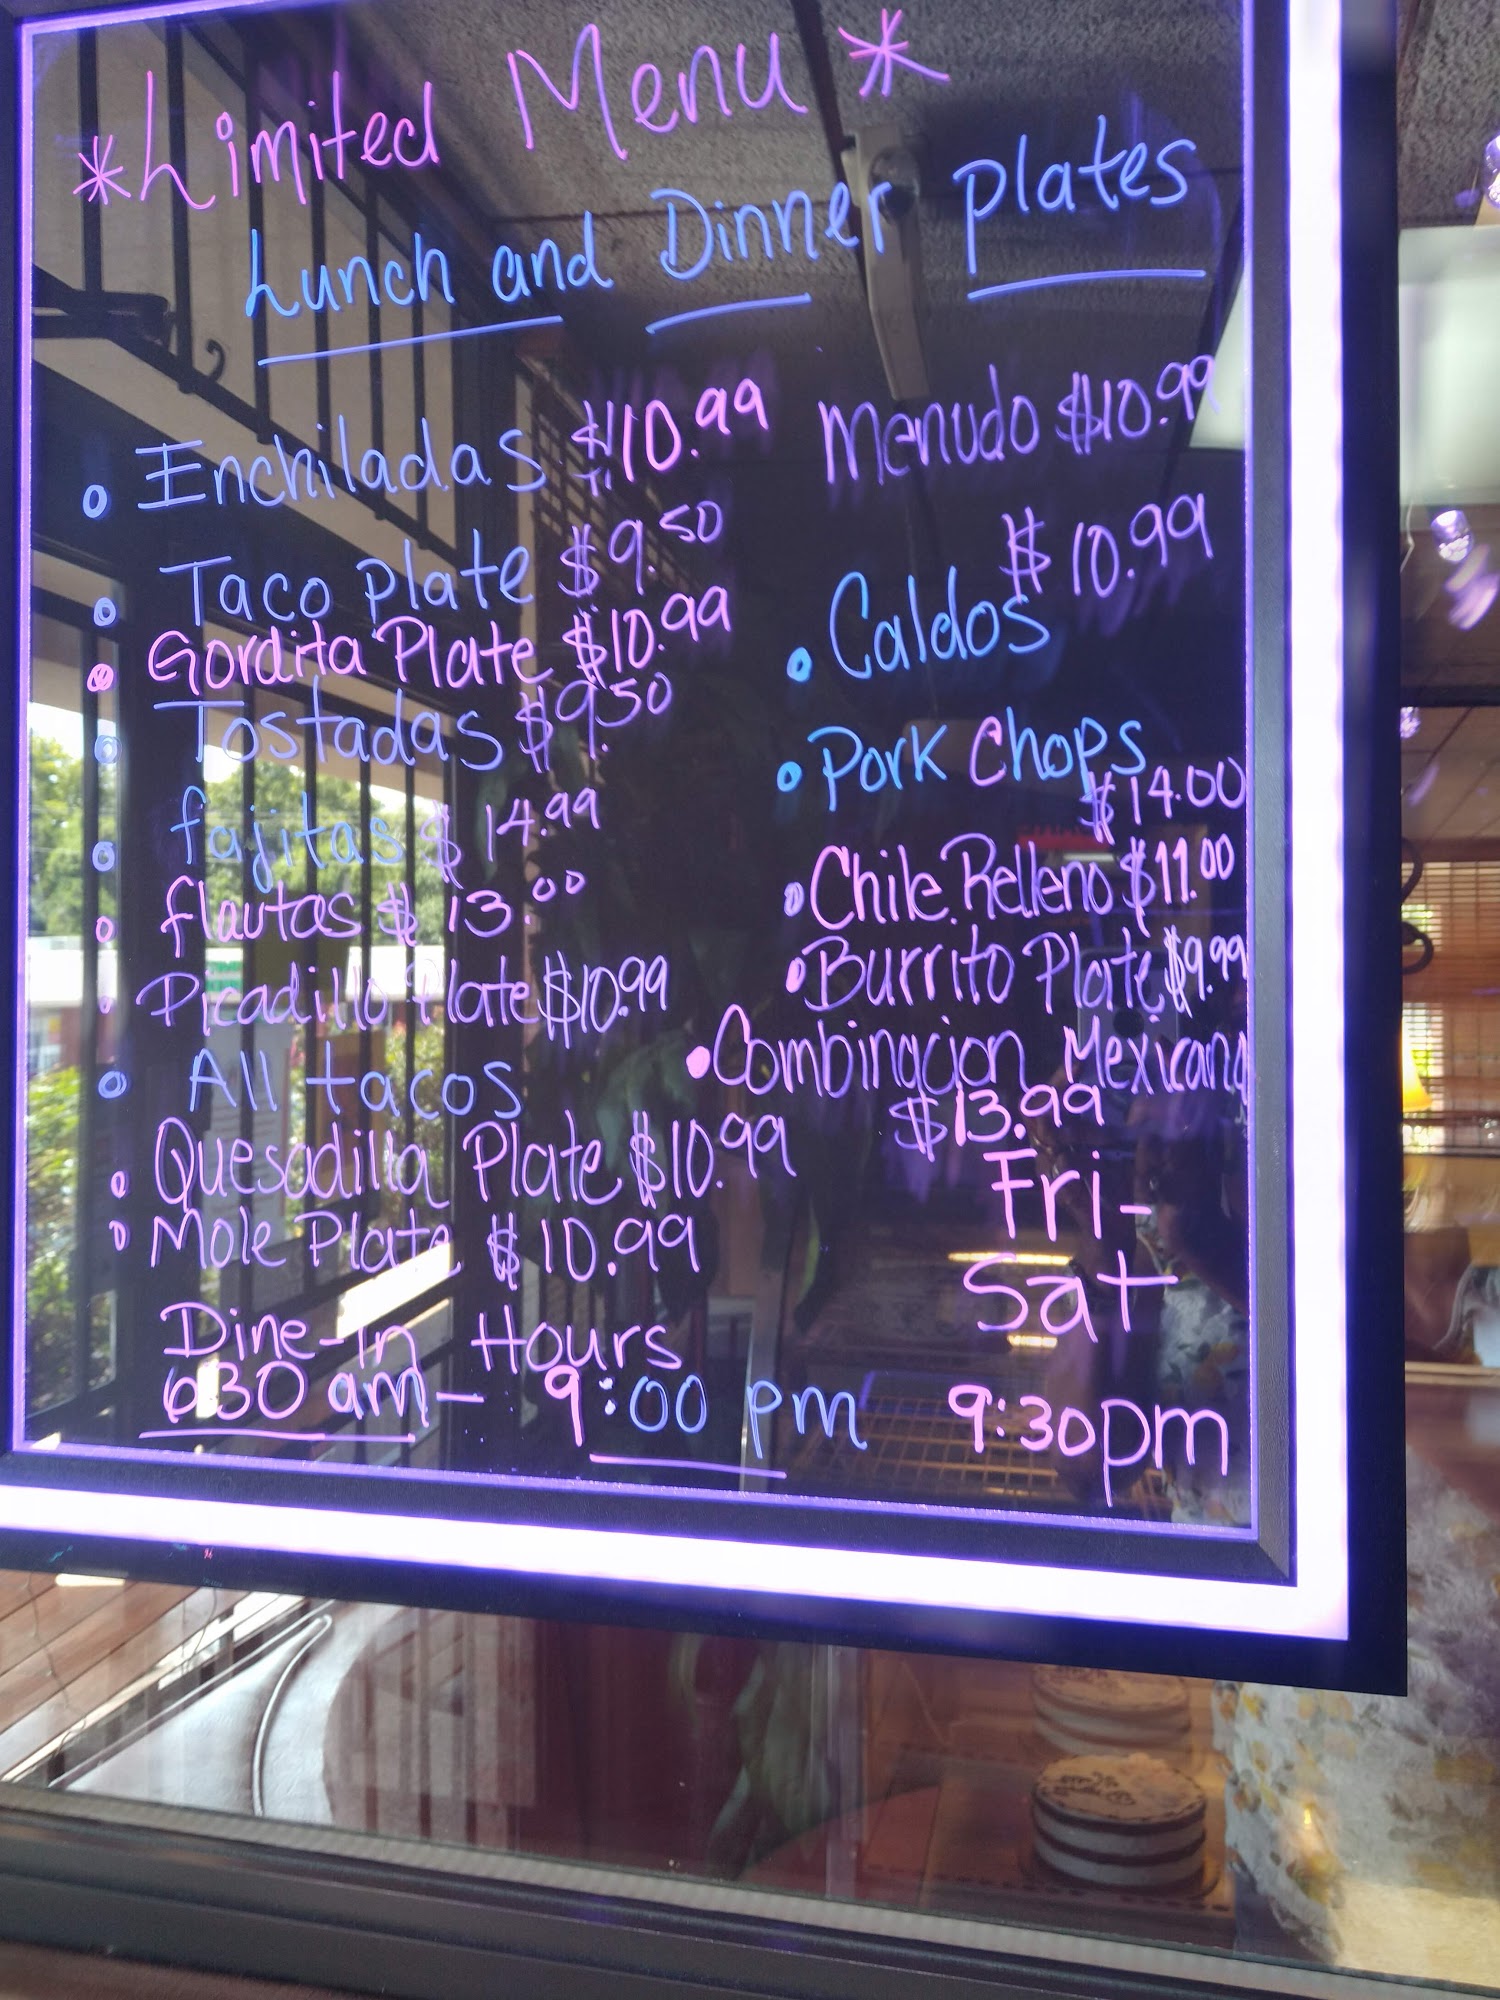 *Limited Menu*
Lunch and Dinner plates
Enchiladas $10.99
Taco plate $9.50
Gordita Plate $10.99
Tostadas $9.50
fajitas $14.99
flautas $13.00
Picadillo Plate $10.99
All tacos
Quesadilla Plate $10.99
Mole Plate $10.99
Menudo $10.99
$10.99
Caldos
Pork Chops
$14.00
Chile Relleno $11.00
Burrito Plate $9.99
Combinacion Mexicana
$13.99
Dine-in Hours
630 am - 9:00 pm
Fri-
Sat
9:30pm